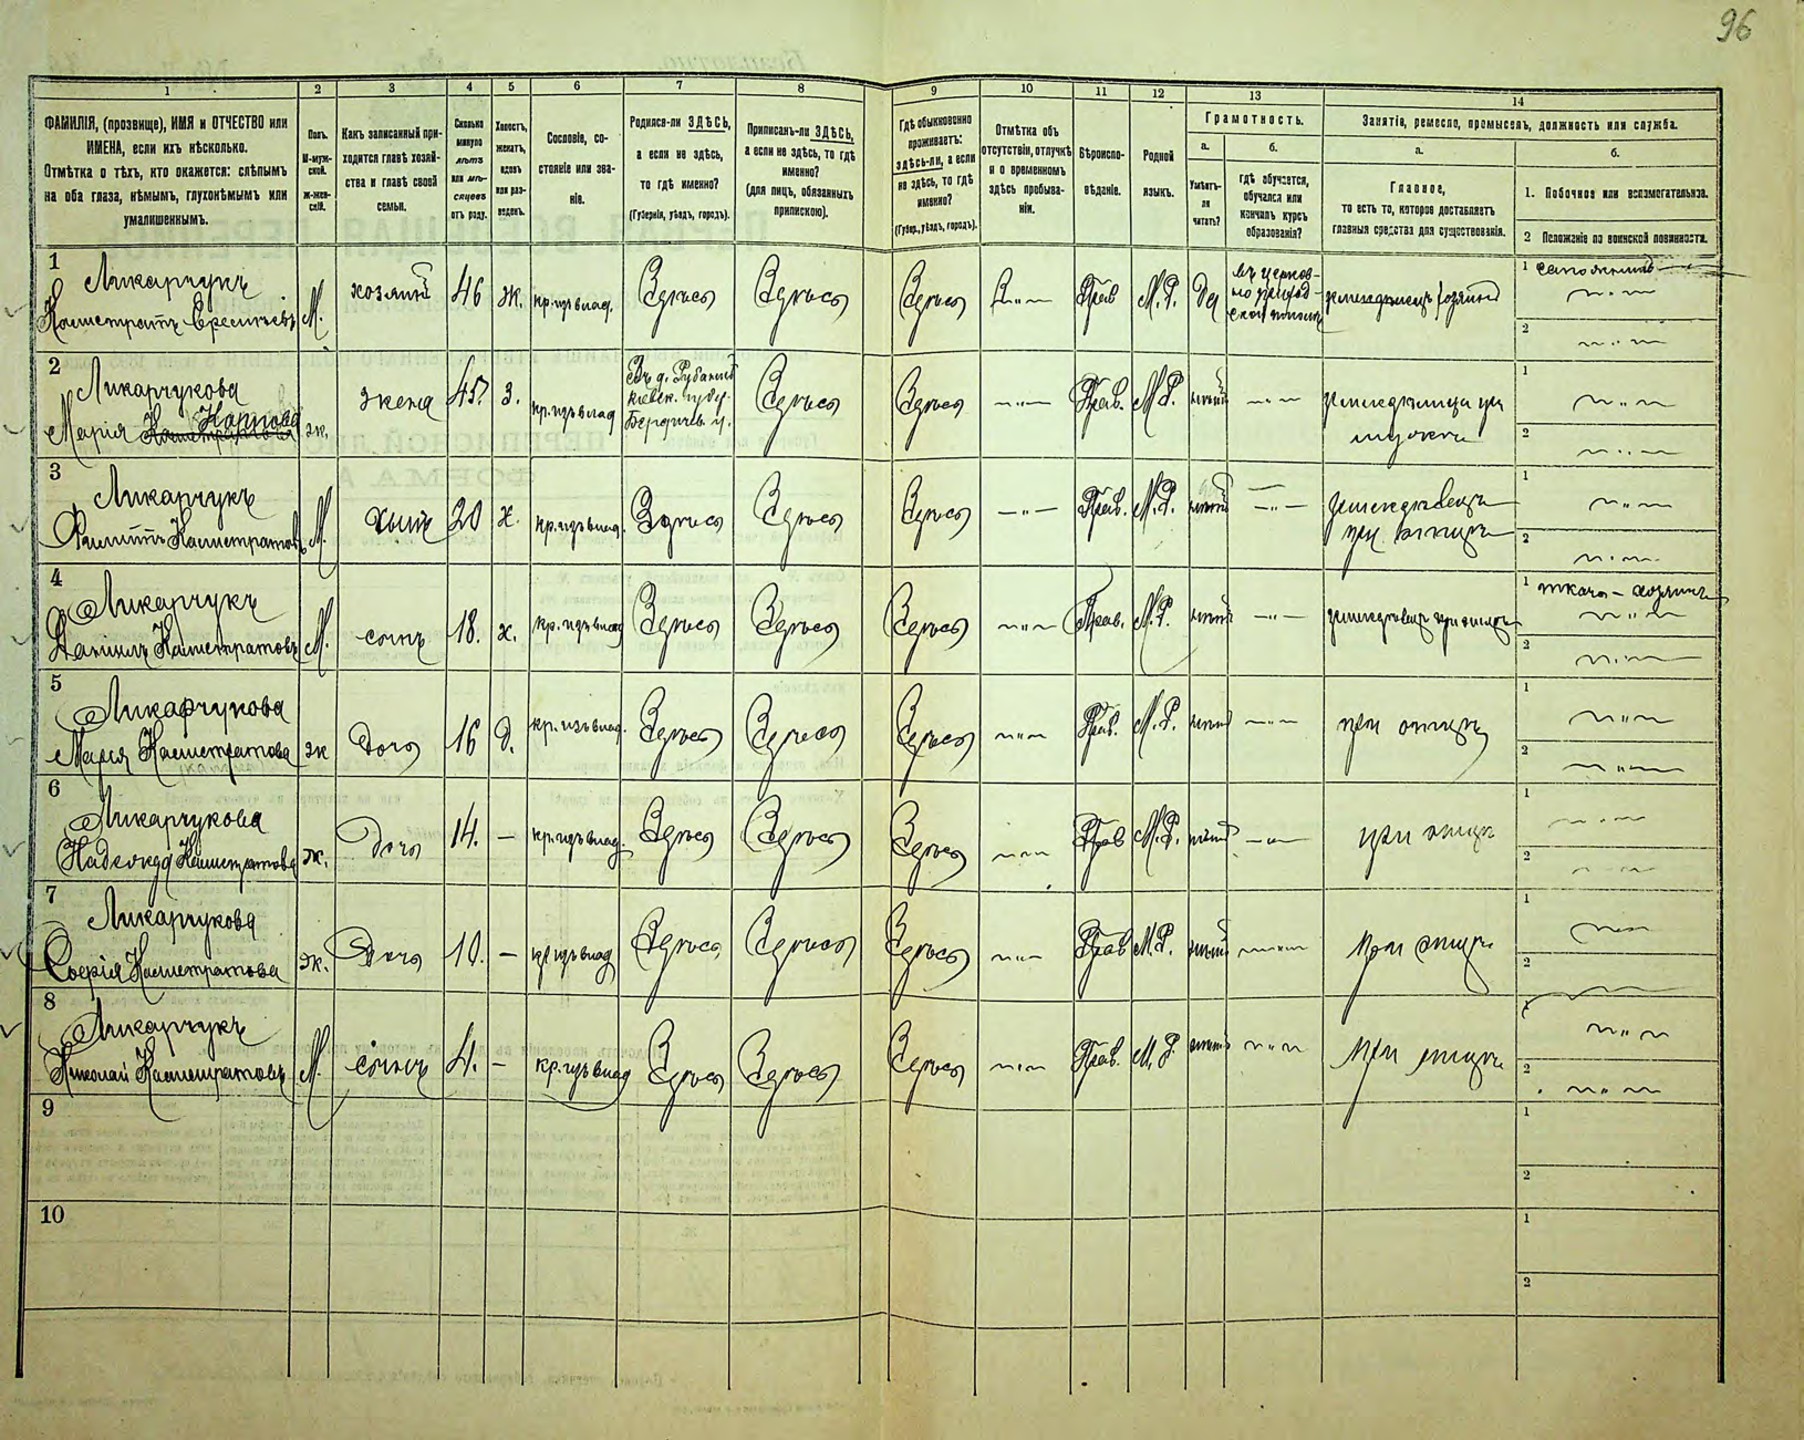 96
1 2 3 4 5 6 7 8 9 10 11 12 13 14
ФАМИЛІЯ, (прозвище), ИМЯ и ОТЧЕСТВО или
ИМЕНА, если ихъ нѣсколько.
Отмѣтка о тѣхъ, кто окажется: слѣпымъ
на оба глаза, нѣмымъ, глухонѣмымъ или
умалишеннымъ.
Полъ.
М-муж-
ской.
Ж-жен-
скій.
Какъ записанный при-
ходится главѣ хозяй-
ства и главѣ своей
семьи.
Сколько
минуло
лѣтъ
или мѣ-
сяцевъ
отъ роду.
Холостъ,
женатъ,
вдовъ
или раз-
веденъ.
Сословіе, со-
стояніе или зва-
ніе.
Родился-ли ЗДѢСЬ,
а если не здѣсь,
то гдѣ именно?
(Губернія, уѣздъ, городъ).
Приписанъ-ли ЗДѢСЬ,
а если не здѣсь, то гдѣ
именно?
(для лицъ, обязанныхъ
припискою).
Гдѣ обыкновенно
проживаетъ:
здѣсь-ли, а если
не здѣсь, то гдѣ
именно?
(Губер., уѣздъ, городъ).
Отмѣтка объ
отсутствіи, отлучкѣ
и о временномъ
здѣсь пребыва-
ніи.
Вѣроиспо-
вѣданіе.
Родной
языкъ.
Грамотность.
а.
Умѣетъ-
ли
читать?
б.
гдѣ обучается,
обучался или
кончилъ курсъ
образованія?
Занятіе, ремесло, промыселъ, должность или служба.
а.
Главное,
то есть то, которое доставляетъ
главныя средства для существованія.
б.
1. Побочное или вспомогательное.
2 Положеніе по воинской повинности.
1
Ликарчукъ
М. хозяинъ 46 ж. кр. изъ влад. Здѣсь Здѣсь Здѣсь Прав М. Р. Да
въ церков-
но приход-
ской школѣ
1
2
2
Ликарчукова
Марія Карпова
ж. жена 45 з. кр. изъ влад
Въ д.
Киевск. губ.
Бердичев. у.
Здѣсь Здѣсь Прав. М. Р.
1
2
3
Ликарчукъ
Филиппъ Калистратовъ
М. сынъ 20 х. кр. изъ влад. Здѣсь Здѣсь Здѣсь Прав. М. Р.
земледѣлецъ
при отцѣ
1
2
4
Ликарчукъ
Даниилъ Калистратовъ
М. сынъ 18. х. кр. изъ влад Здѣсь Здѣсь Здѣсь Прав. М. Р. земледѣлецъ при отцѣ
1 ткачъ – хозяинъ
2
5
Ликарчукова
Марія Калистратова
ж дочь 16 д. кр. изъ влад. Здѣсь Здѣсь Здѣсь Прав. М. Р. при отцѣ
1
2
6
Ликарчукова
Надежда Калистратова
ж. дочь 14. – кр. изъ влад. Здѣсь Здѣсь Здѣсь Прав М. Р. при отцѣ
1
2
7
Ликарчукова
Софія Калистратова
ж. Дочь 10. – кр изъ влад Здѣсь Здѣсь Здѣсь Прав М. Р. при отцѣ
1
2
8
Ликарчукъ
Николай Калистратовъ
М. сынъ 4. – кр. изъ влад Здѣсь Здѣсь Здѣсь Прав. М. Р. при отцѣ
1
2
9
1
2
10
1
2